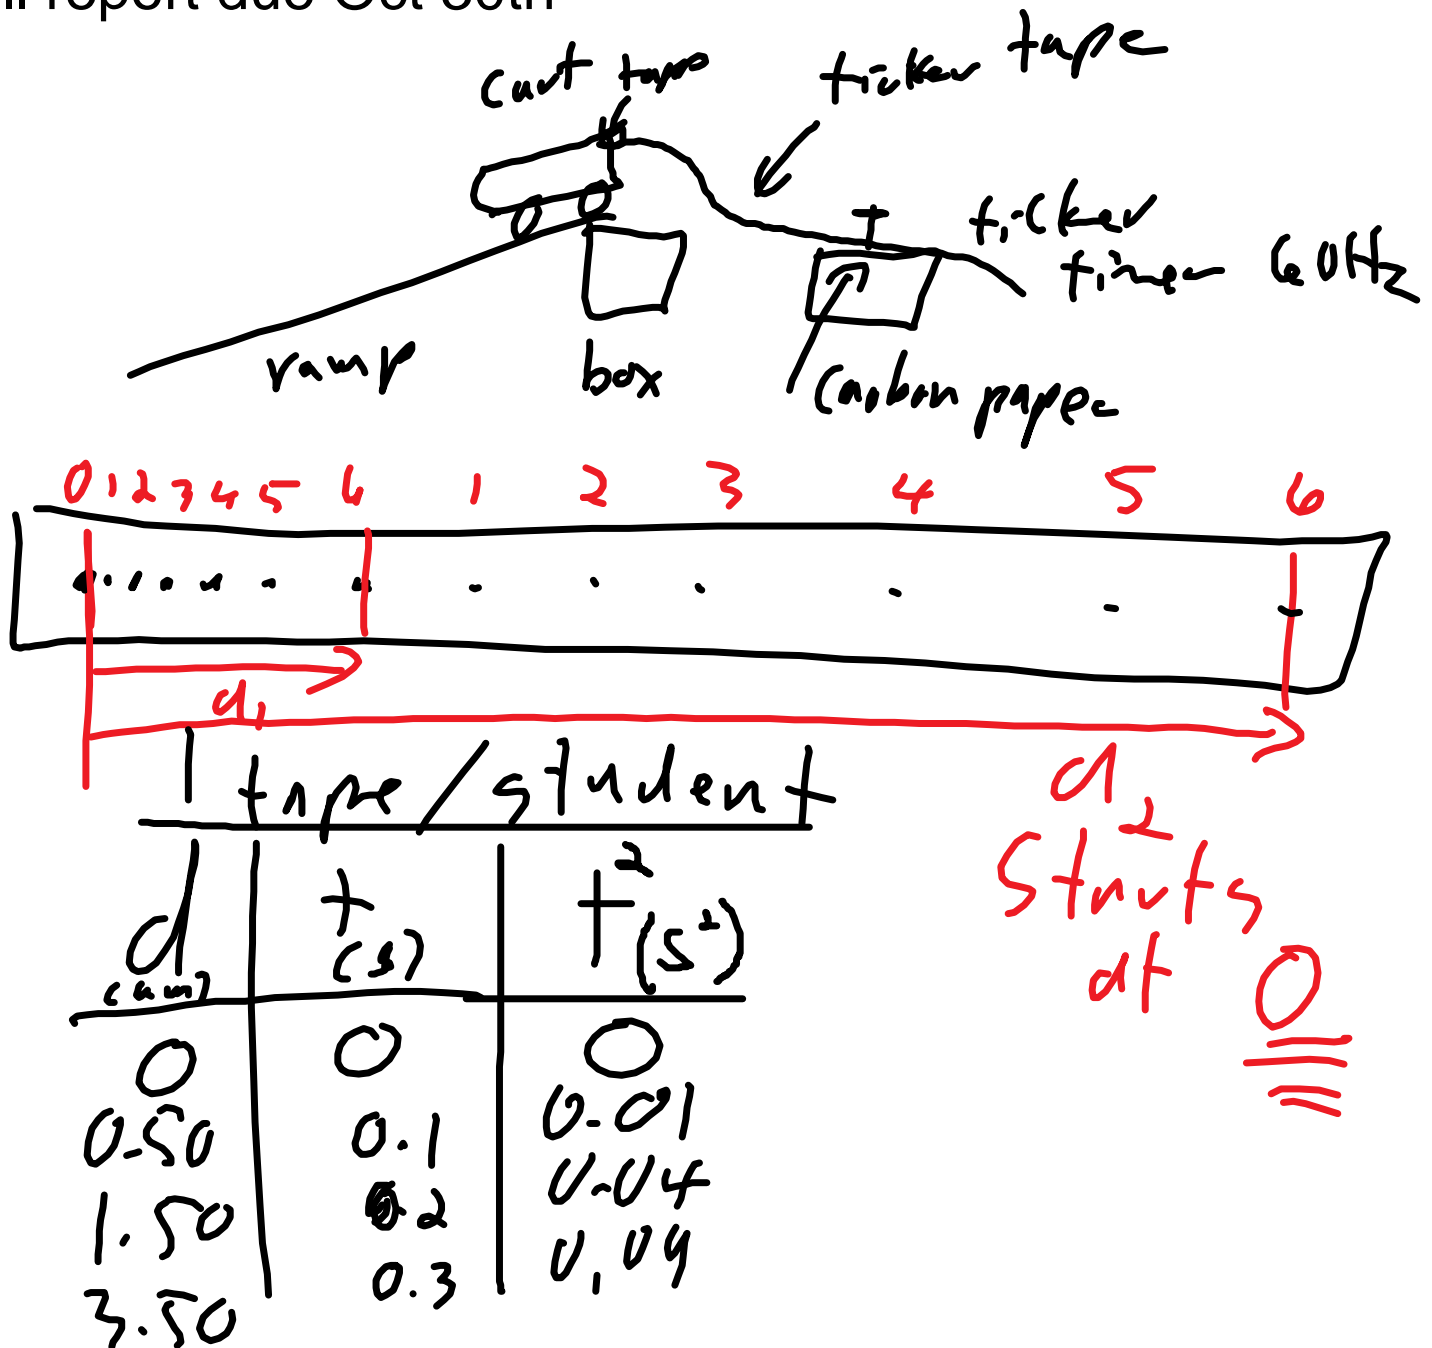 ll report due Oct 30th
cart tape
ticker tape
ticker
timer 60Hz
ramp
box
carbon paper
0 1 2 3 4 5 6 1 2 3 4 5 6
d1
d2
1 tape/student
starts
at 0
d (cm) t (s) t² (s²)
0 0 0
0.50 0.1 0.01
1.50 0.2 0.04
3.50 0.3 0.09